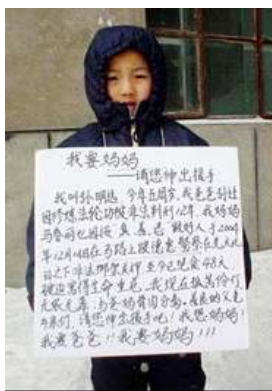 我要妈妈
——请您伸出援手
我叫孙明远,今年五周岁,我爸爸孙
因修炼法轮功被非法判刑12年,我妈妈
马春 也因按真、善、忍做好人于2004
年12月14日在马路上被德惠警察在光天化
日之下非法绑架关押至今已绝食48天
被迫害得生命垂危。我现在孤苦伶仃
无依无靠,与爸妈骨肉分离。善良的父老
乡亲们,请您伸出援手吧!我想妈妈!
我要爸爸!!我要妈妈!!!